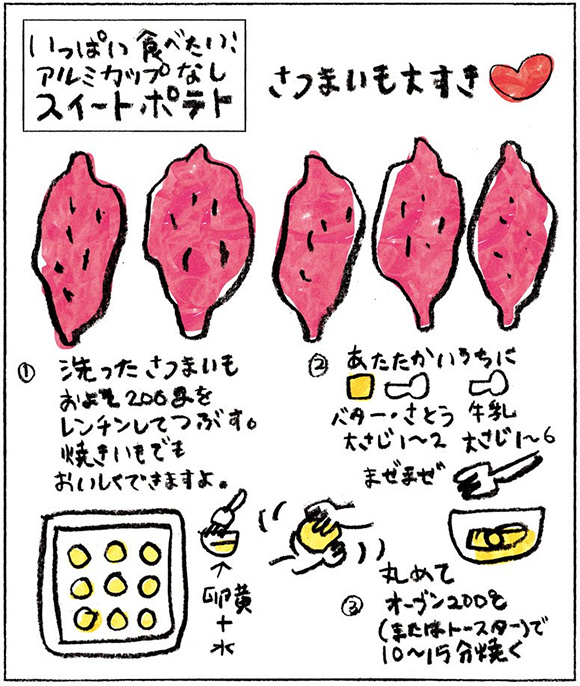 いっぱい食べたい!
アルミカップなし
スイートポテト
さつまいも大すき
① 洗ったさつまいも
およそ200gを
レンチンしてつぶす。
焼きいもでも
おいしくできますよ。
② あたたかいうちに
バター・さとう 牛乳
大さじ1〜2 大さじ1〜6
まぜまぜ
卵黄
+
水
丸めて
③ オーブン200℃
(またはトースター)で
10〜15分焼く